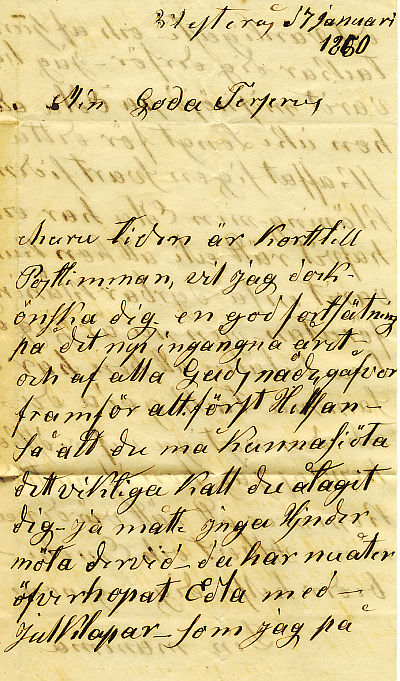 Westerås 17 Januari
1860
Min Goda
ehuru tiden är kort till
Posttimman, vil jag dock
önska dig en god fortsätning
på det nyi ingångna året
och af alla Guds nådegåfvor
framför alt först Helsan –
Så att du må kunna sjöta
dett viktiga kall du åtagit
dig – ja måtte inga hinder
möta dervid – du har nu åter
öfverhopat Edla med –
julklapar – som jag på